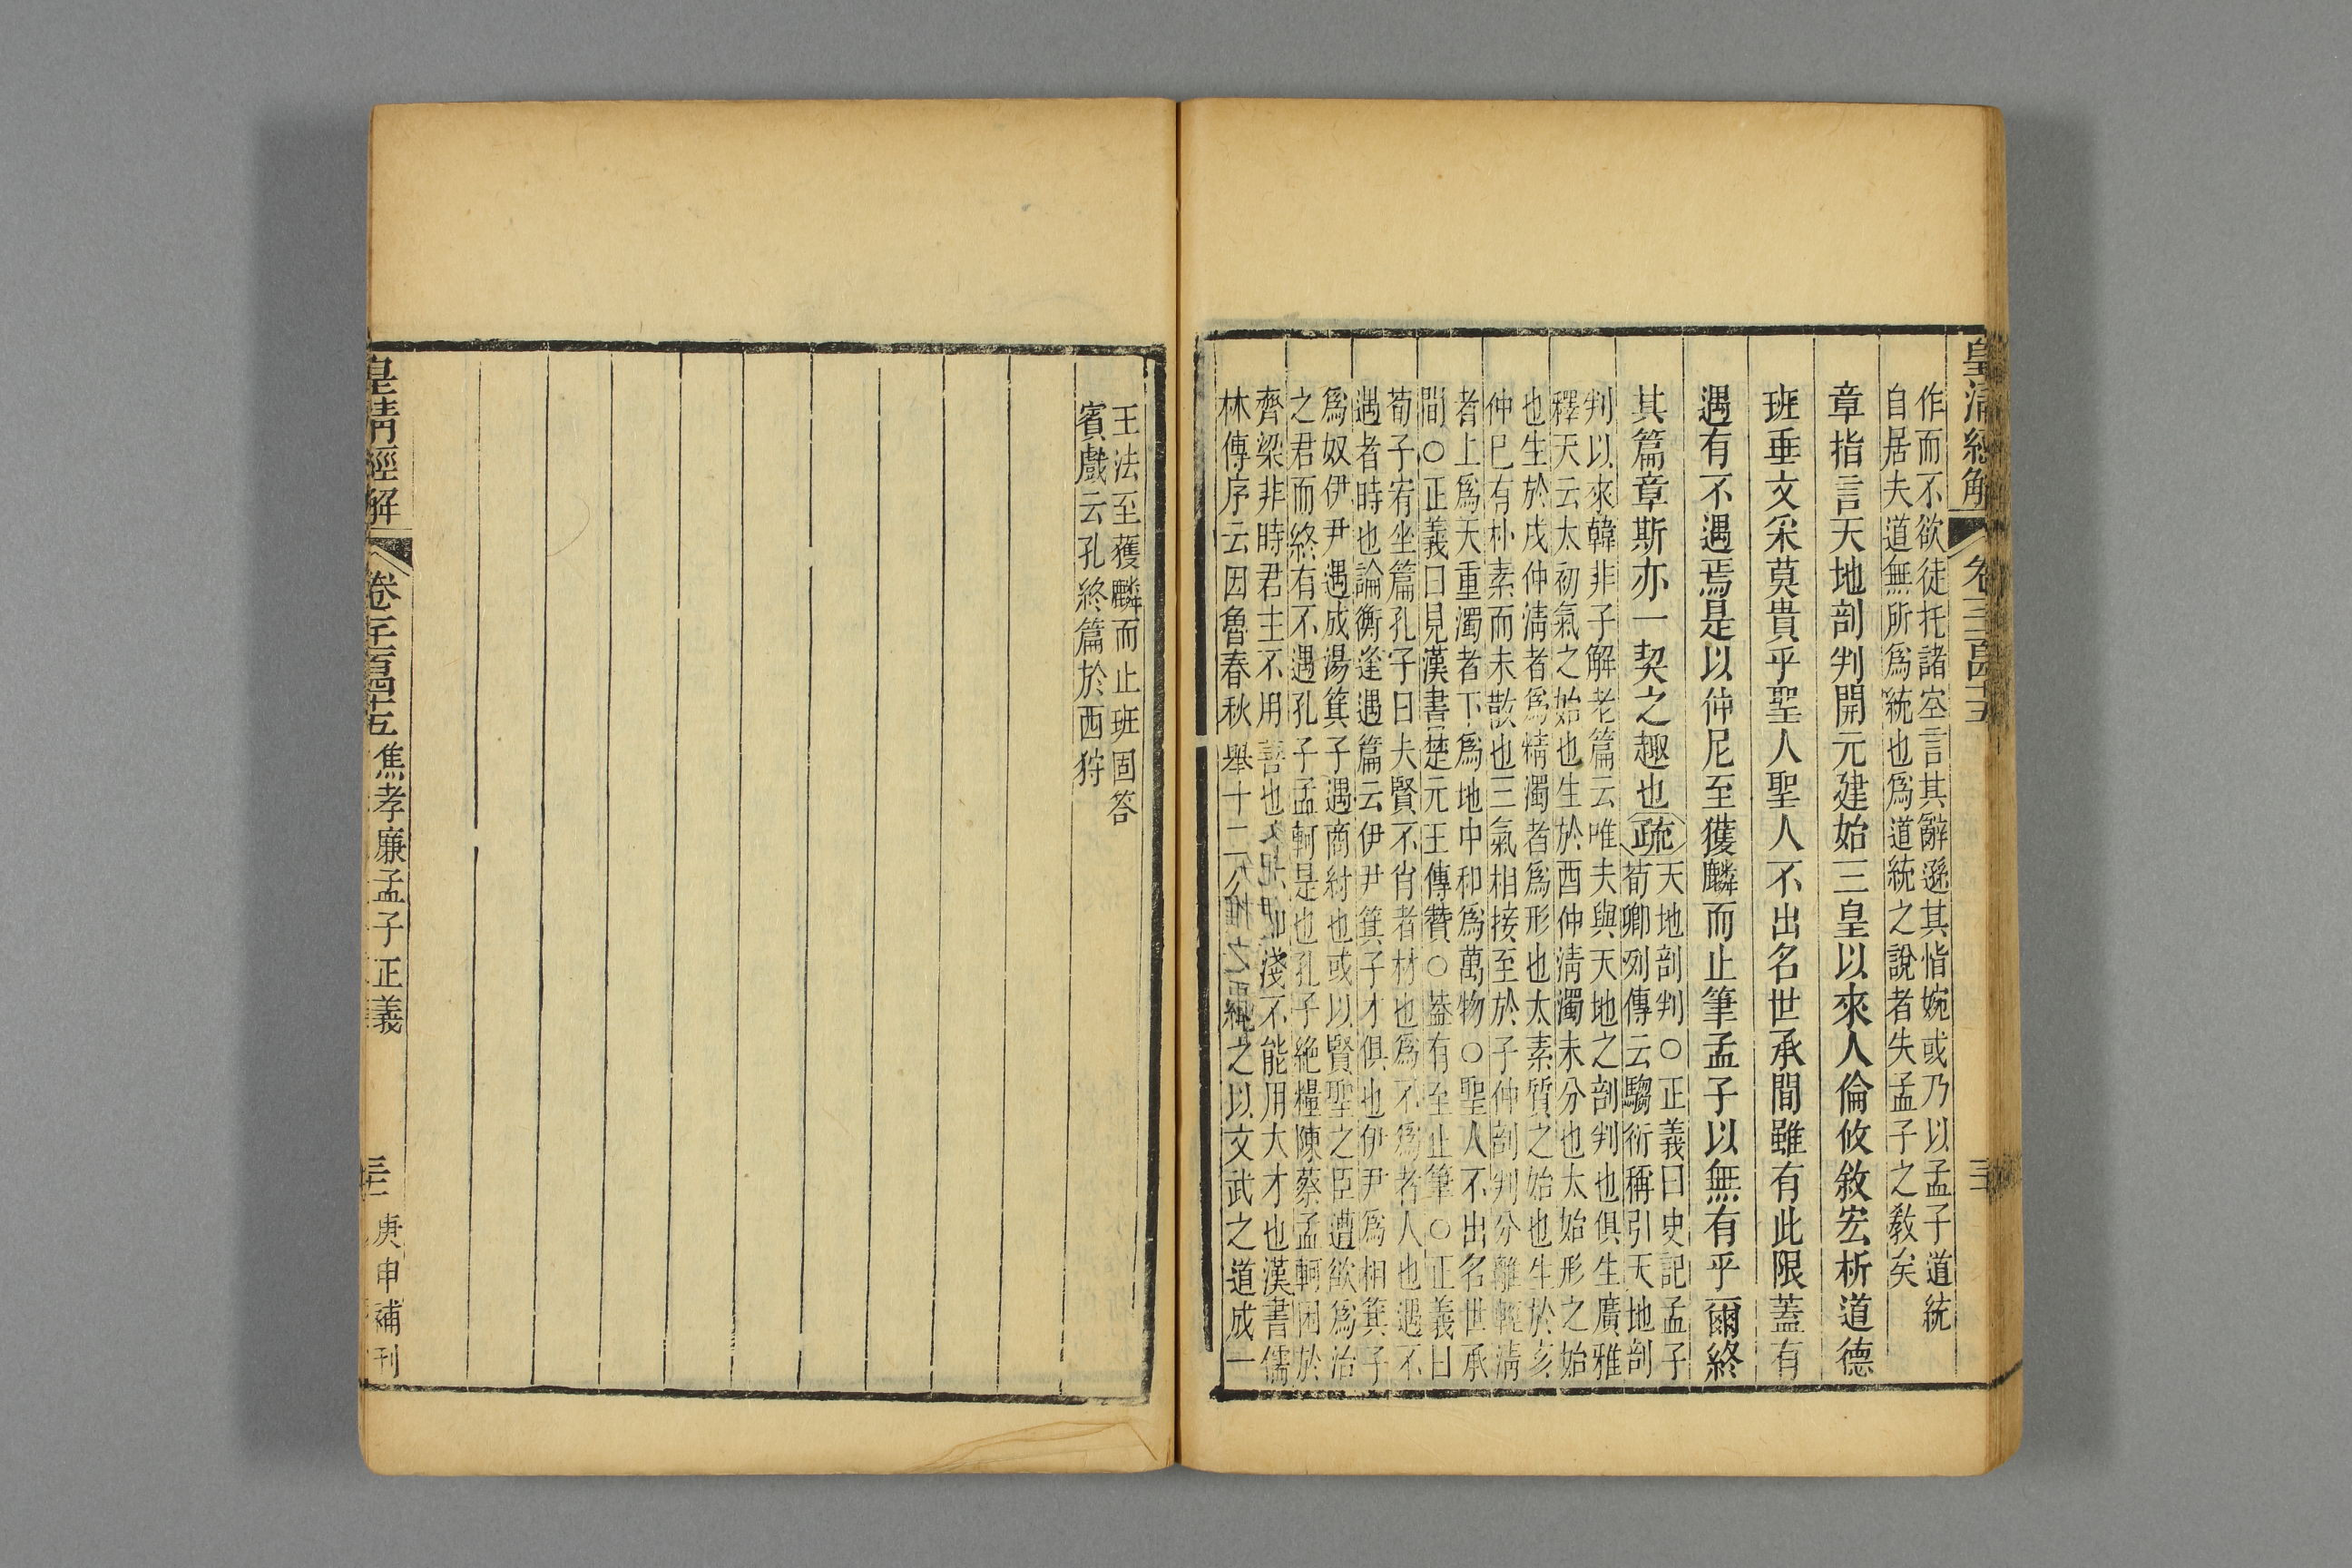 皇清經解 卷
作而不欲徒托諸空言其辭遜其恉婉或乃以孟子道統
自居夫道無所爲統也爲道統之說者失孟子之敎矣
章指言天地剖判開元建始三皇以來人倫攸敘宏析道德
班垂文采莫貴乎聖人聖人不出名世承間雖有此限蓋有
遇有不遇焉是以仲尼至獲麟而止筆孟子以無有乎爾終
其篇章斯亦一契之趣也疏
天地剖判○正義曰史記孟子
荀卿列傳云騶衍稱引天地剖
判以來韓非子解老篇云唯夫與天地之剖判也俱生廣雅
釋天云太初氣之始也生於酉仲淸濁未分也太始形之始
也生於戌仲淸者爲精濁者爲形也太素質之始也生於亥
仲已有朴素而未散也三氣相接至於子仲剖判分離輕淸
者上爲天重濁者下爲地中和爲萬物○聖人不出名世承
間○正義曰見漢書楚元王傳贊○蓋有至止筆○正義曰
荀子宥坐篇孔子曰夫賢不肖者材也爲不爲者人也遇不
遇者時也論衡逢遇篇云伊尹箕子才俱也伊尹爲相箕子
爲奴伊尹遇成湯箕子遇商紂也或以賢聖之臣遭欲爲治
之君而終有不遇孔子孟軻是也孔子絕糧陳蔡孟軻困於
齊梁非時君主不用善也 淺不能用大才也漢書儒
林傳序云因魯春秋舉十二公 繩之以文武之道成一
王法至獲麟而止班固答
賓戲云孔終篇於西狩
皇清經解 卷 焦孝廉孟子正義
庚申補刊